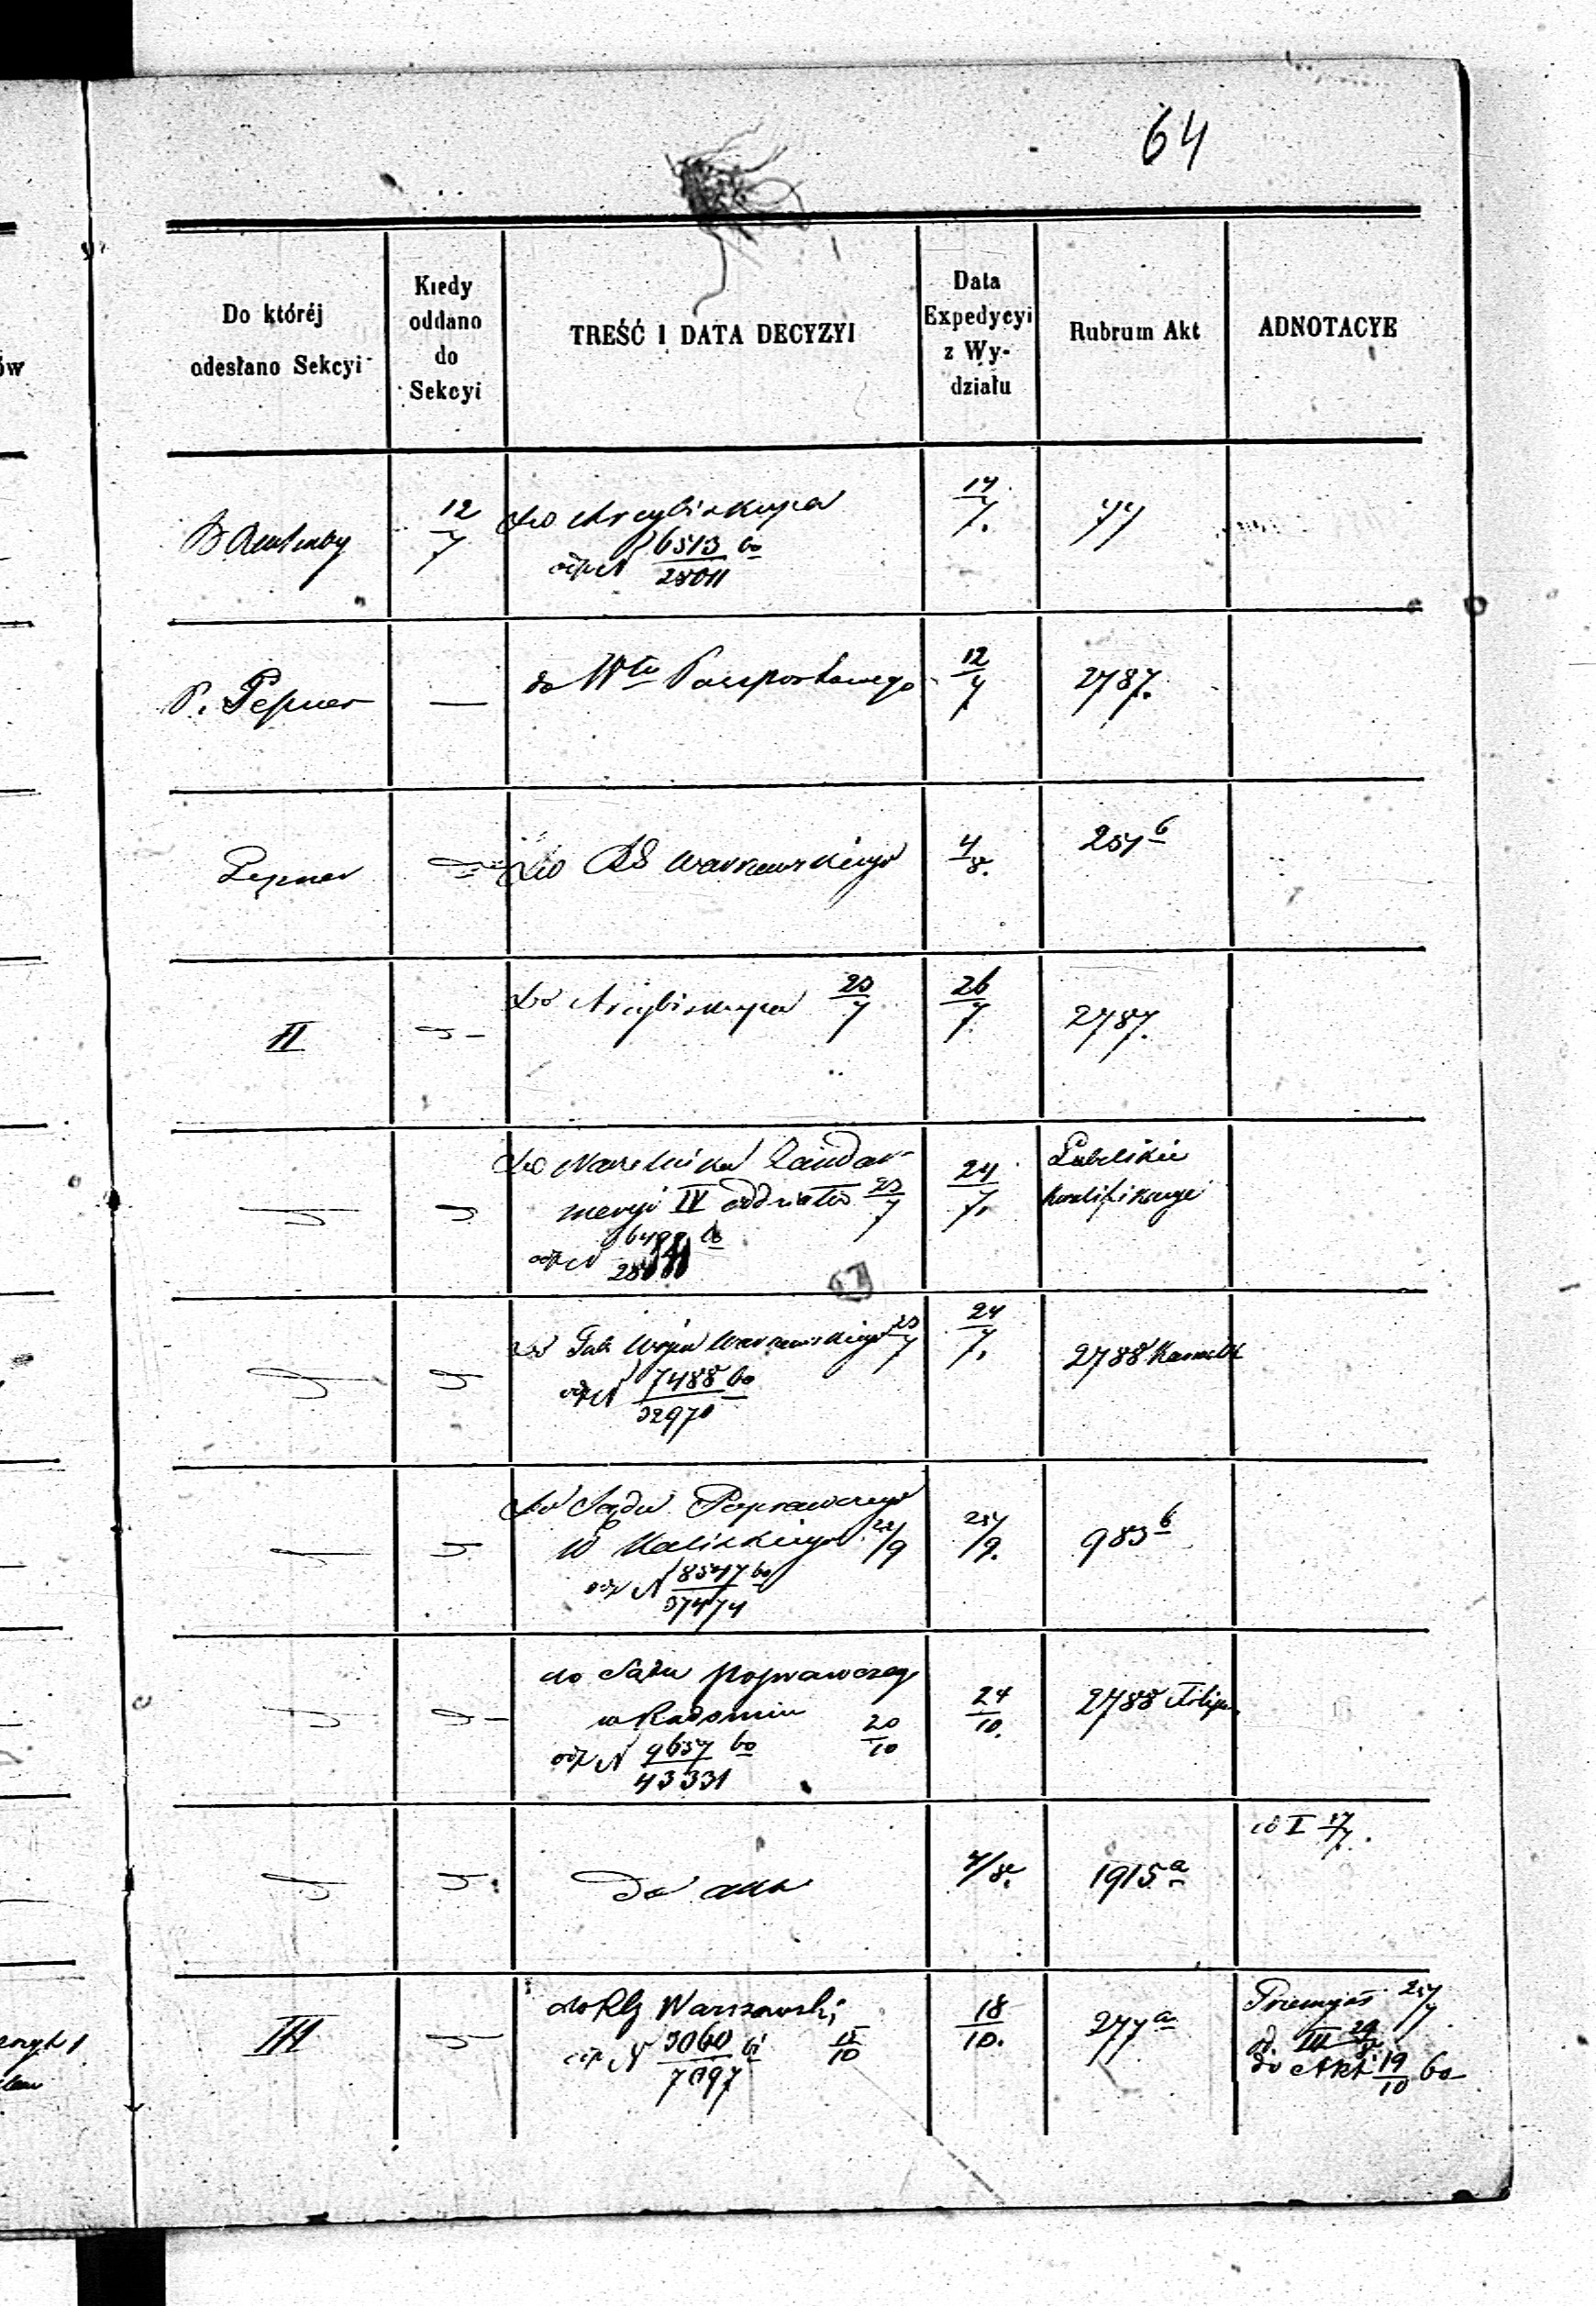 64
Do któréj
odesłano Sekcyi
Kiedy
oddano
do
Sekcyi
TREŚĆ I DATA DECYZYI
Data
Expedycyi
z Wy-
działu
Rubrum Akt
ADNOTACYE
12/7
Do Arcybiskupa
odp N 6513 bo / 28011
14/7.
77
P. Pepner
—
do Włu Paszportowego
12/7
2787.
Pepner
Do RS Warszawskiego
4/8.
251 b
II
Do Arcybiskupa 23/7
26/7.
2787.
Do Naczelnika Żandar-
meryi IV oddziału 23/7
odp N
24/7.
Lubelskie
kwalifikacye
Do Gub Wojen Warszawskiego 23/7
odp N 7488 bo / 32970
24/7.
2788
Do Sądu Poprawczego
W Kaliskiego 22/9
odp N 8547 bo / 37474
25/9.
983 b
do Sądu poprawczego
w Radomiu 20/10
odp N 9657 bo / 43331
24/10.
2788 Filip
Do akt
4/8.
1915 a
od I 17/7.
III
do RG Warszawski
odp N 3060 bi / 7097
15/10
18/10.
277 a
od III 29/8
do Akt 19/10 bo